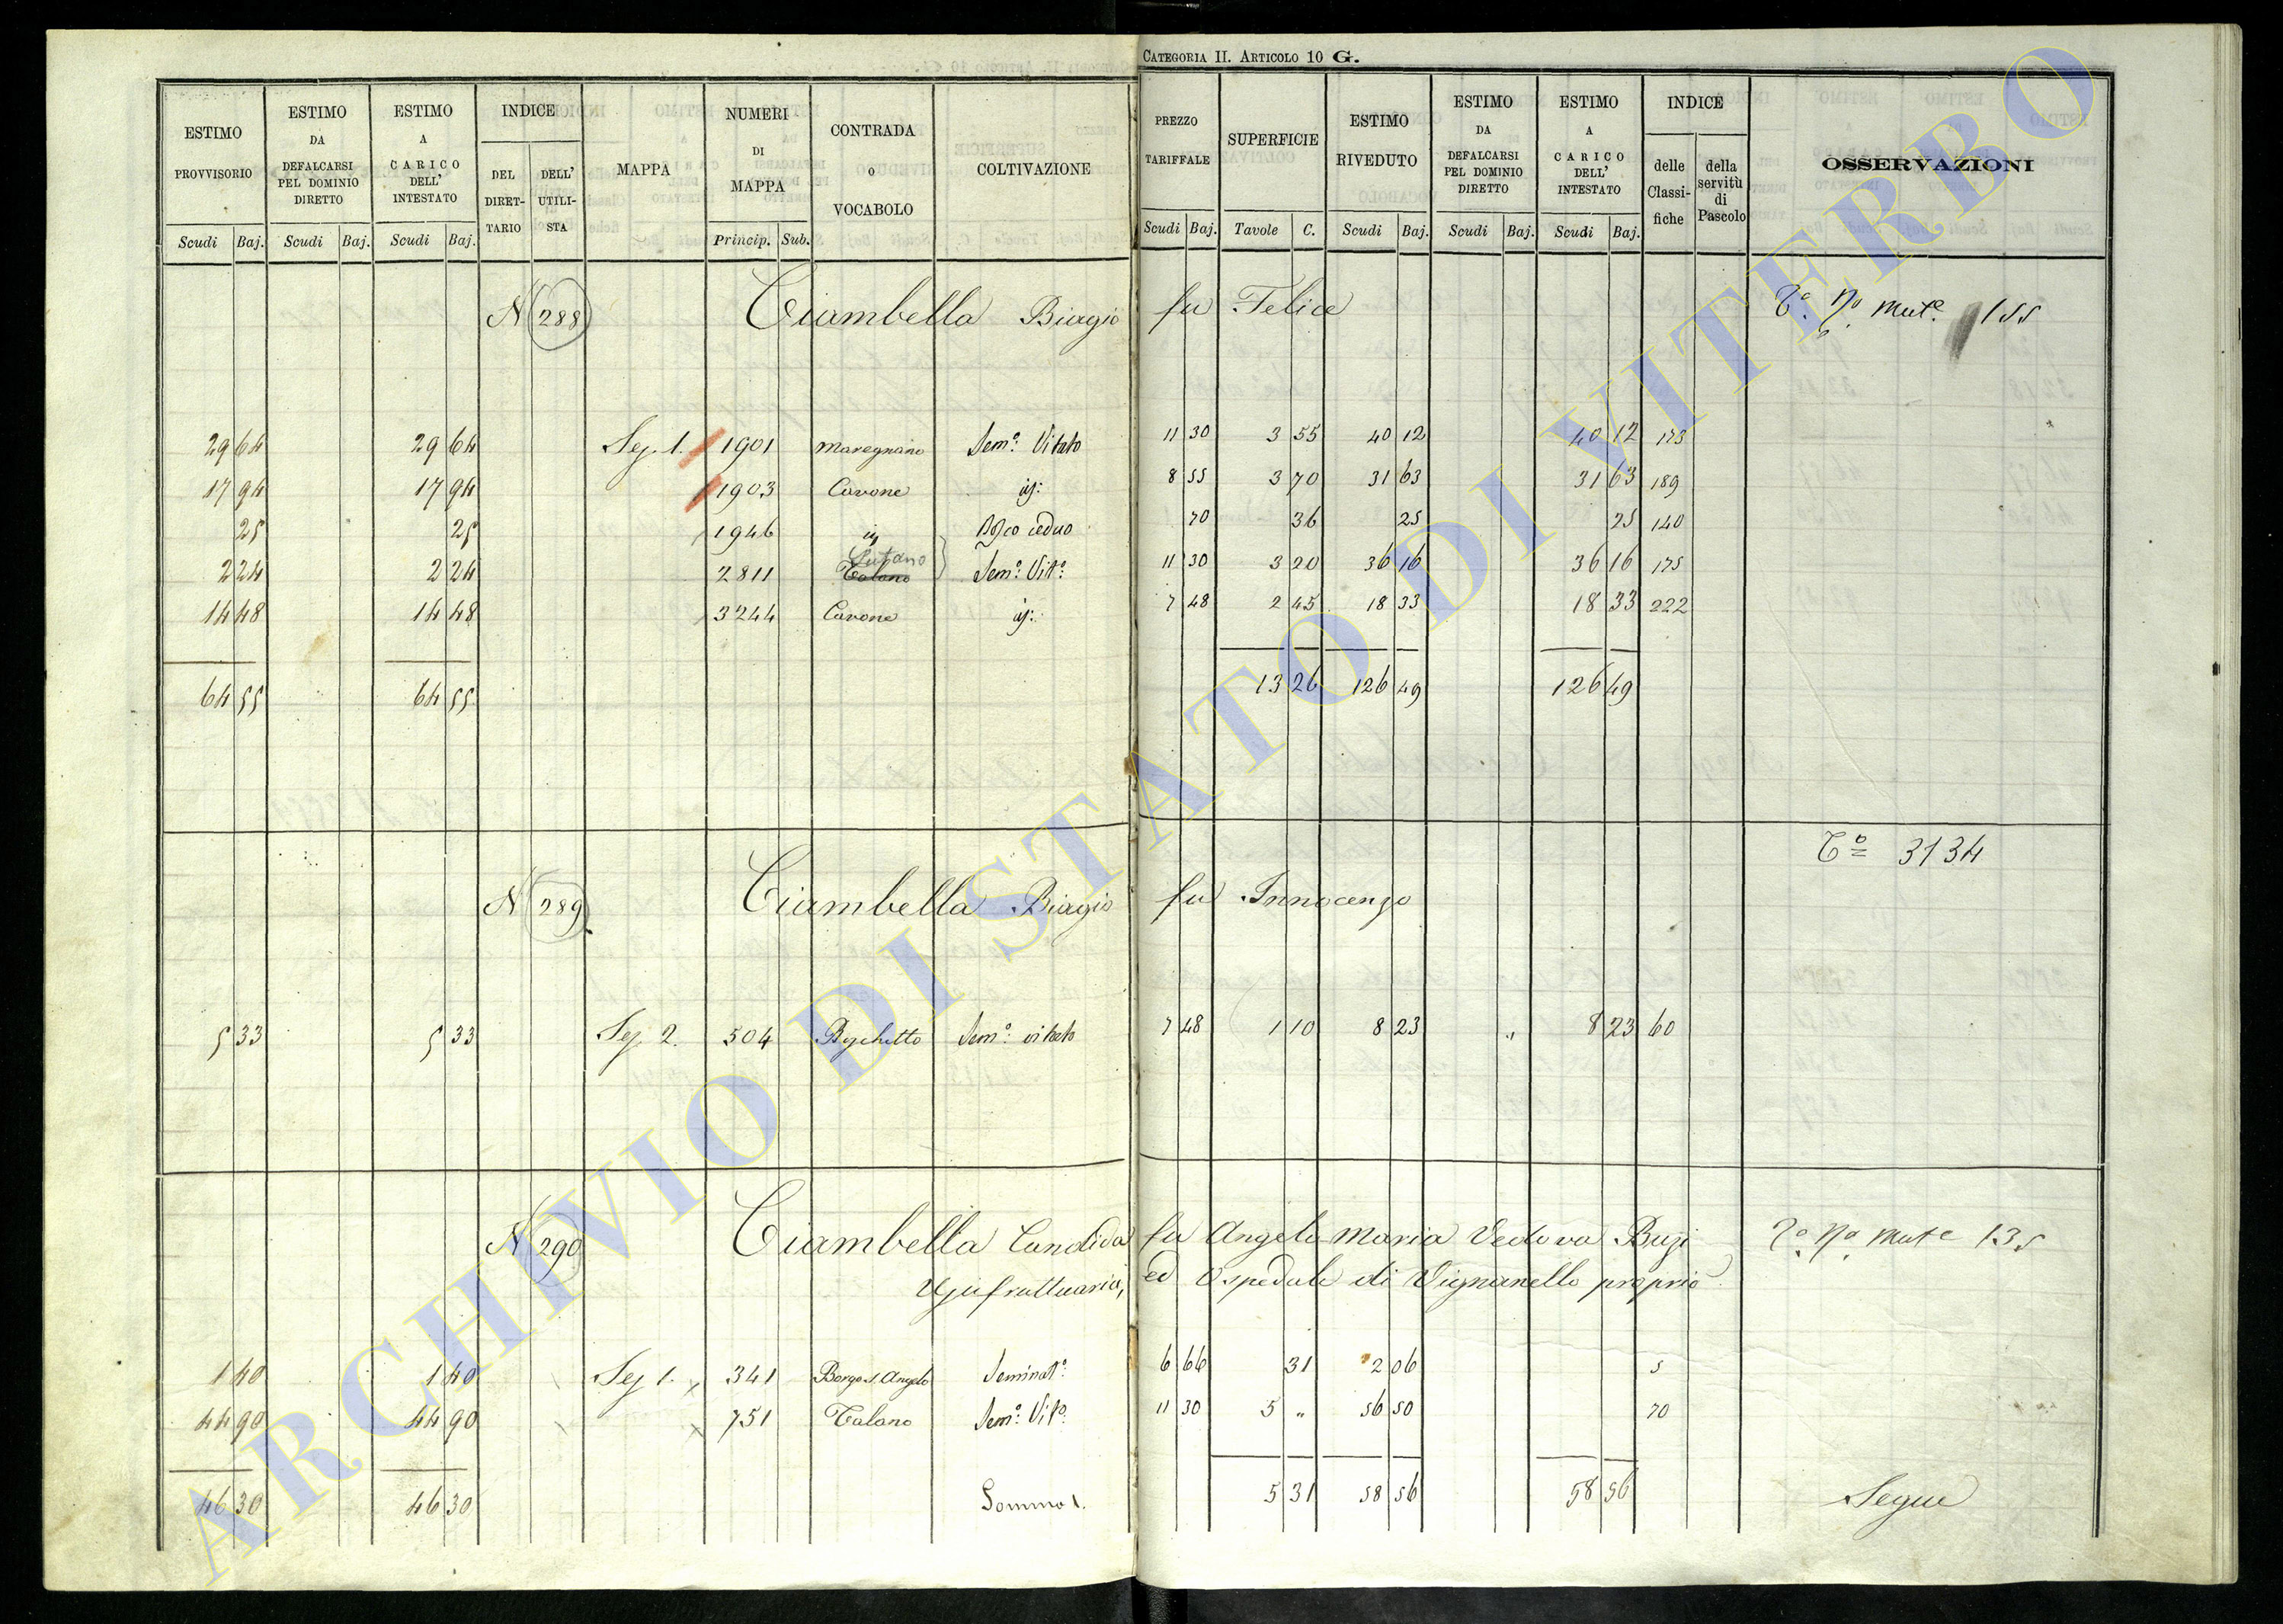 CATEGORIA II. ARTICOLO 10 G.
ESTIMO PROVVISORIO Scudi Baj.
ESTIMO DA DEFALCARSI PEL DOMINIO DIRETTO Scudi Baj.
ESTIMO A CARICO DELL' INTESTATO Scudi Baj.
INDICE DEL DIRETTARIO DELL' UTILISTA
MAPPA
NUMERI DI MAPPA Princip. Sub.
CONTRADA O VOCABOLO
COLTIVAZIONE
PREZZO TARIFFALE Scudi Baj.
SUPERFICIE Tavole C.
ESTIMO RIVEDUTO Scudi Baj.
ESTIMO DA DEFALCARSI PEL DOMINIO DIRETTO Scudi Baj.
ESTIMO A CARICO DELL' INTESTATO Scudi Baj.
INDICE delle Classifiche della servitù di Pascolo
OSSERVAZIONI
N 288 Ciambella Biagio fu Felice 155
29 64 29 64 Sez. 1. 1901 Maregnano Sem.o Vitato 11 30 3 55 40 12 40 12 175
17 94 17 94 1903 Cavone id: 8 55 3 70 31 63 31 63 189
25 25 1946 id Bosco ceduo 70 36 25 25 140
2 24 2 24 2811 Talano Sem.o Vit.o 11 30 3 20 36 16 36 16 175
14 48 14 48 3244 Cavone id: 7 48 2 45 18 33 18 33 222
64 55 64 55 13 26 126 49 126 49
T.o 3134
N 289 Ciambella Biagio fu Innocenzo
5 33 5 33 Sez. 2. 504 Sem.o vitato 7 48 1 10 8 23 " 8 23 60
N 290 Ciambella Candida fu Angelo Maria Vedova Buzi 135
Usufruttuaria, ed Ospedale di Vignanello proprio
1 40 1 40 Sez 1. 341 Borgo S. Angelo Seminat.o 6 66 31 2 06 5
44 90 44 90 751 Talano Sem.o Vit.o 11 30 5 " 56 50 70
46 30 46 30 Somma 5 31 58 56 58 56 Segue
ARCHIVIO DI STATO DI VITERBO